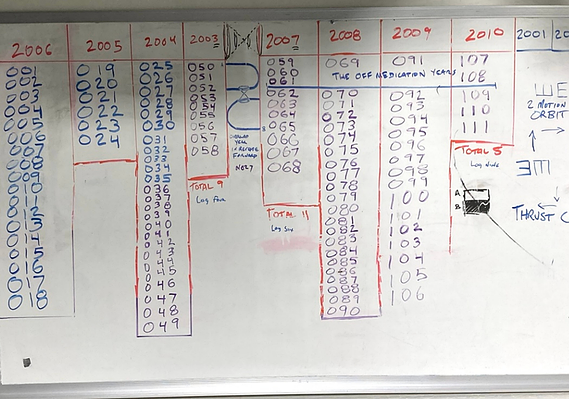 2006
001
002
003
004
005
006
007
008
009
010
011
012
013
014
015
016
017
018
2005
019
020
021
022
023
024
2004
025
026
027
028
029
030
031
032
033
034
035
036
037
038
039
040
041
042
043
044
045
046
047
048
049
2003
050
051
052
053
054
055
056
057
058
TOTAL 9
Log Four
2007
059
060
061
062
063
064
065
066
067
068
TOTAL 11
Log Six
THE OFF MEDICATION YEARS
2008
069
070
071
072
073
074
075
076
077
078
079
080
081
082
083
084
085
086
087
088
089
090
2009
091
092
093
094
095
096
097
098
099
100
101
102
103
104
105
106
2010
107
108
109
110
111
TOTAL 5
Log Nine
A
B
2001
20
WE
2 MOTION
ORBIT
3M
THRUST C